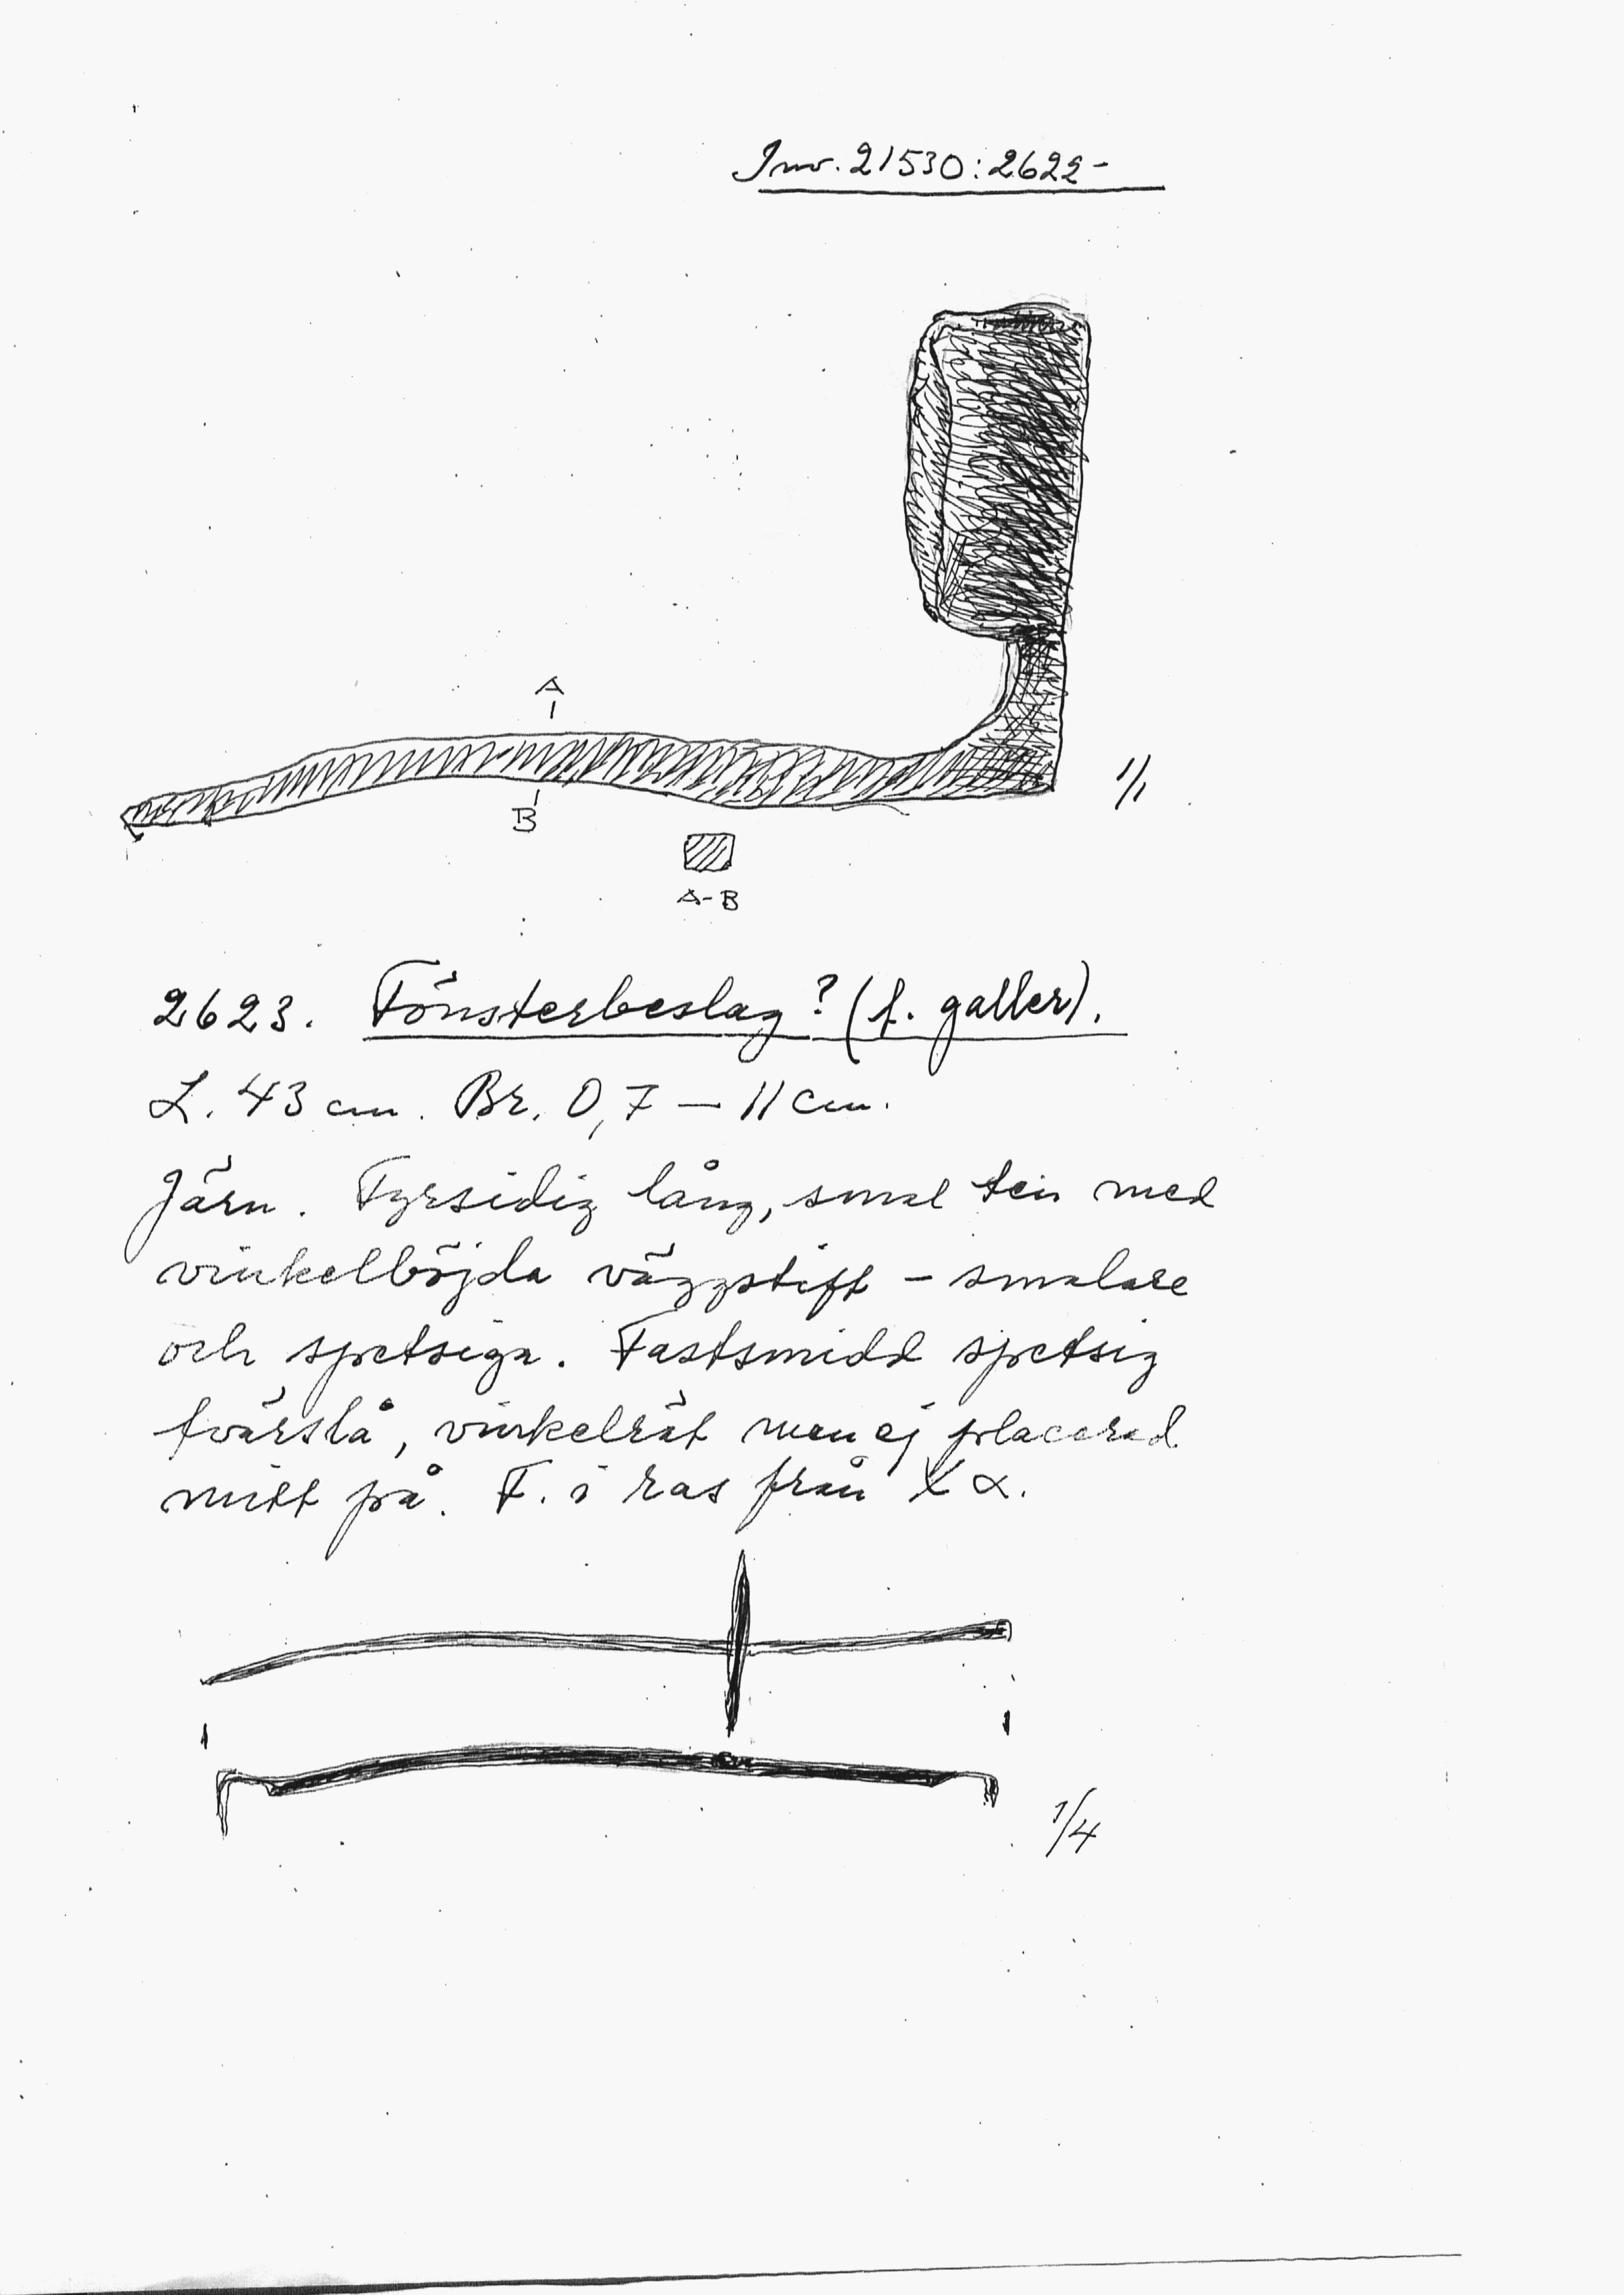 Inv. 21530:2622-
A
B
1/1
A-B
2623. Fönsterbeslag? (f. galler).
L. 43 cm. Br. 0,7 — 11 cm.
Järn. Fyrsidig lång, smal ten med
vinkelböjda väggstift - smalare
och spetsiga. Fastsmidd spetsig
tvärslå, vinkelrät men ej placerad
mitt på. F. i ras från X α.
1/4